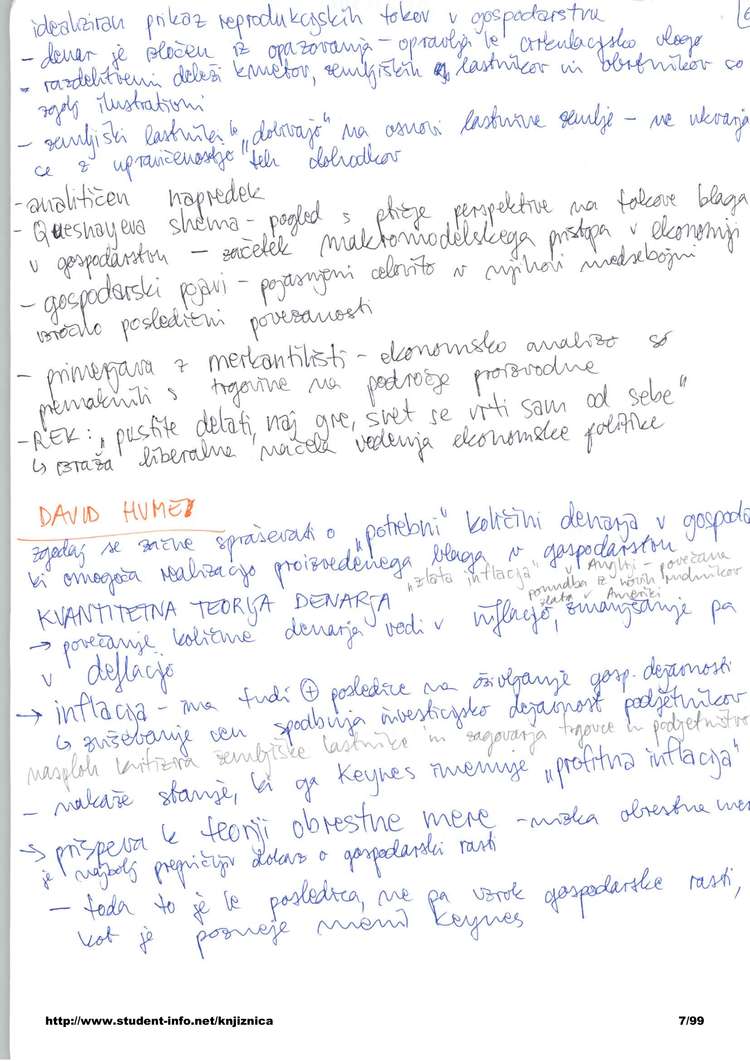 idealiziran prikaz reprodukcijskih tokov v gospodarstvu
- denar je izločen iz opazovanja - opravlja le cirkulacijsko vlogo
- razdelitveni deleži kmetov, zemljiških lastnikov in obrtnikov so
zgolj ilustrativni
- zemljiški lastniki "dobivajo" na osnovi lastnine zemlje - ne ukvarja
se z upravičenostjo teh dohodkov
- analitičen napredek
- Quesnayeva shema - pogled s ptičje perspektive na tokove blaga
v gospodarstvu - začetek makromodelskega pristopa v ekonomiji
- gospodarski pojavi - pojasnjeni celovito v njihovi medsebojni
vzročno posledični povezanosti
- primerjava z merkantilisti - ekonomsko analizo so
premaknili s trgovine na področje proizvodnje
- REK: "pustite delati, naj gre, svet se vrti sam od sebe"
↳ izraža liberalna načela vodenja ekonomske politike
DAVID HUME
zgodaj se začne spraševati o "potrebni" količini denarja v
ki omogoča realizacijo proizvedenega blaga v gospodarstvu
"zlata inflacija" v Angliji - povečana
ponudba iz novih rudnikov
zlata v Ameriki
KVANTITETNA TEORIJA DENARJA
→ povečanje količine denarja vodi v inflacijo, zmanjšanje pa
v deflacijo
→ inflacija - ima tudi ⊕ posledice na oživljanje gosp. dejavnosti
↳ zviševanje cen spodbuja investicijsko dejavnost podjetnikov
nasploh kritizira zemljiške lastnike in zagovarja trgovce in podjetništvo
- nakaže stanje, ki ga Keynes imenuje "profitna inflacija"
→ prispeva k teoriji obrestne mere - nizka obrestna
je najbolj prepričljiv dokaz o gospodarski rasti
- toda to je le posledica, ne pa vzrok gospodarske rasti,
kot je pozneje menil Keynes
http://www.student-info.net/knjiznica
7/99